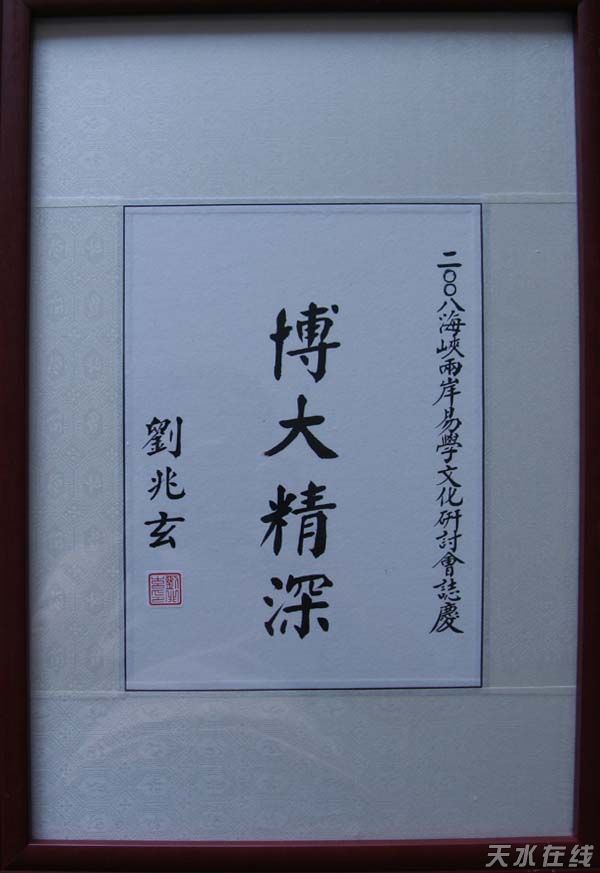 二〇〇八海峽兩岸易學文化研討會誌慶
博大精深
劉兆玄
天水在线